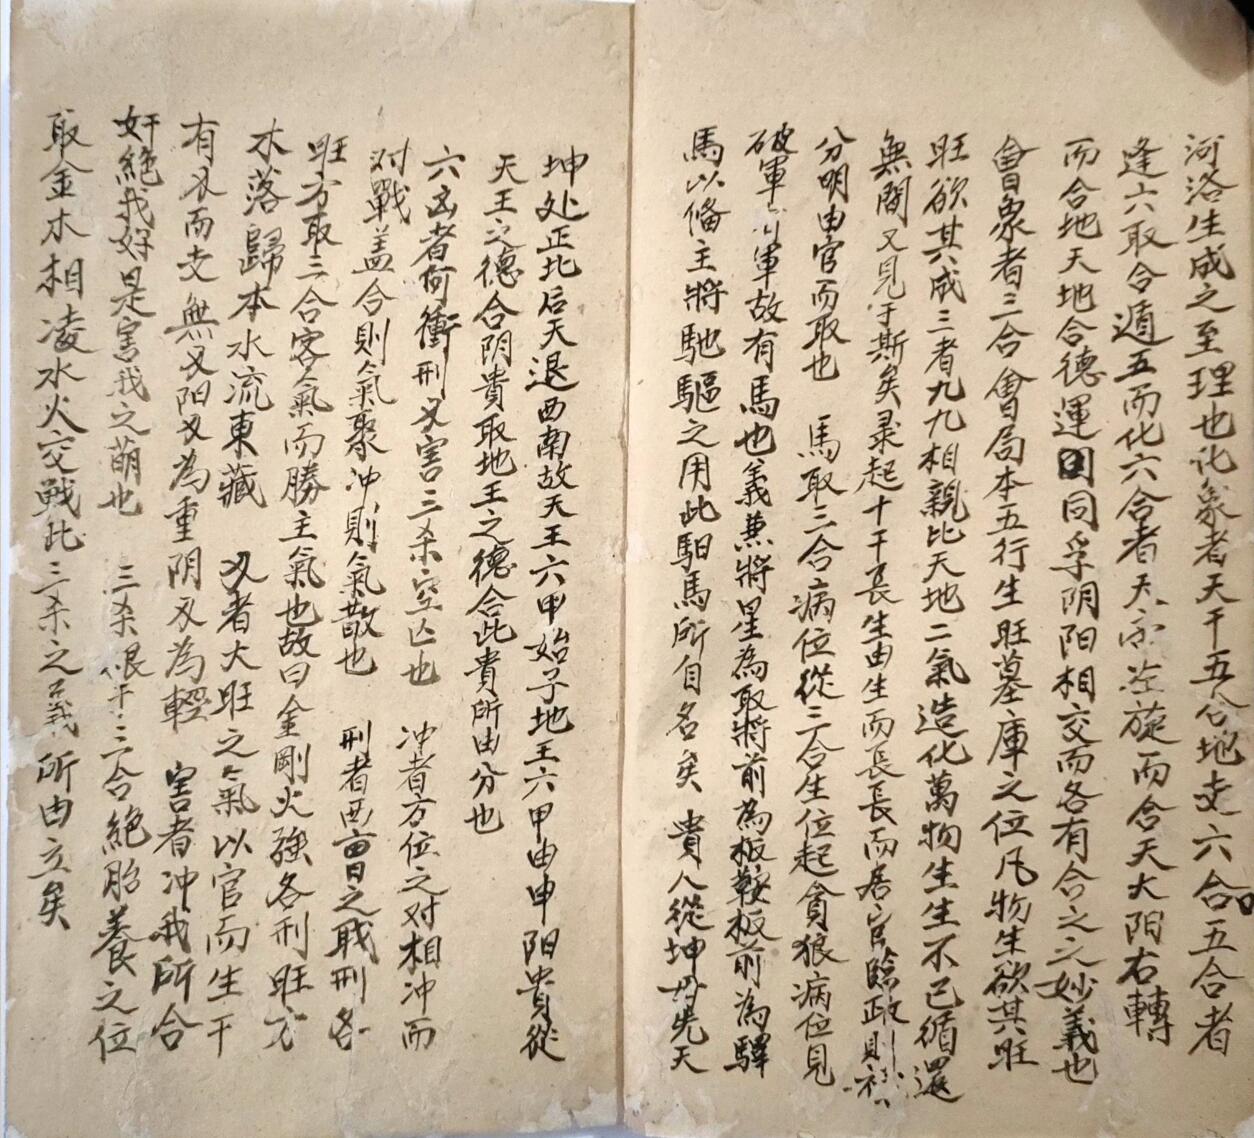 河洛生成之至理也化象者天干五合地支六合五合者
逢六取合遁五而化六合者天左旋而合天大阳右轉
而合地天地合德運同孚阴阳相交而各有合之之妙義也
會象者三合會局本五行生旺墓庫之位凡物生欲其旺
旺欲其成三者九九相親比天地二氣造化萬物生生不已循還
無間又見于斯矣录起十干長生由生而長長而居官臨政則祿
分明由官而取也 馬取三合病位從三合生位起貪狼病位見
破軍軍故有馬也義兼將星為取將前為板鞍板前為驛
馬以俻主將馳驅之用此馹馬所自名矣 貴人從坤母先天
坤处正北后天退西南故天王六甲始子地王六甲由申阳貴從
天王之德合阴貴取地王之德合此貴所由分也
六凶者何衝刑刃害三杀空亡也 冲者方位之对相冲而
对戰盖合則氣聚冲則氣散也 刑者西曹之戝刑各
旺方取三合客氣而勝主氣也故曰金剛火強各刑旺方
木落歸本水流東藏 刃者大旺之氣以官而生干
有刃而支無刃阳刃為重阴刃為輕 害者冲我所合
奸絶我好是害我之萌也 三杀根于三合絶胎養之位
取金木相凌水火交戰此三杀之義所由立矣